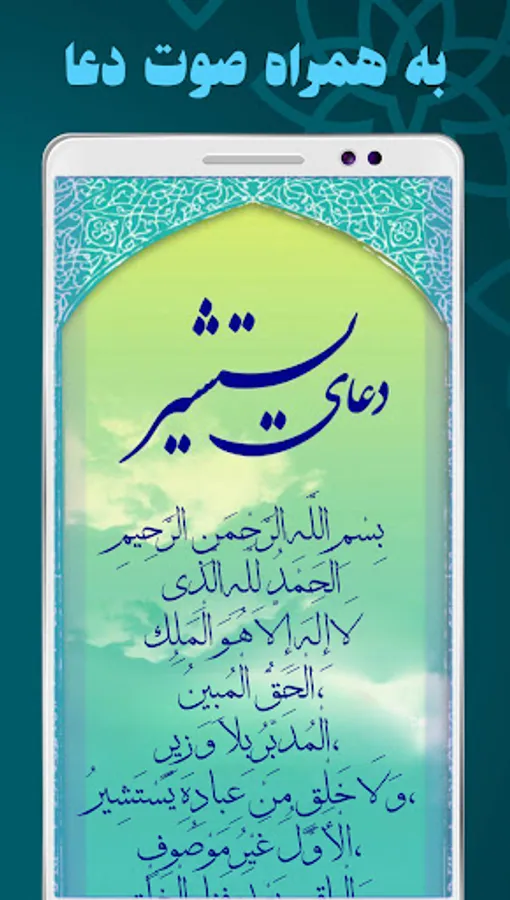 به همراه صوت دعا
دعای یستشیر
بِسْمِ اللَّهِ الرَّحْمَنِ الرَّحِيمِ
الْحَمْدُ لِلَّهِ الَّذِی
لَا إِلَهَ إِلَّا هُوَ الْمَلِكُ
الْحَقُّ الْمُبِينُ،
الْمُدَبِّرُ بِلَا وَزِیرٍ،
وَلَا خَلْقٍ مِنْ عِبَادِهِ يَسْتَشِيرُ،
الْأَوَّلُ غَيْرُ مَوْصُوفٍ،